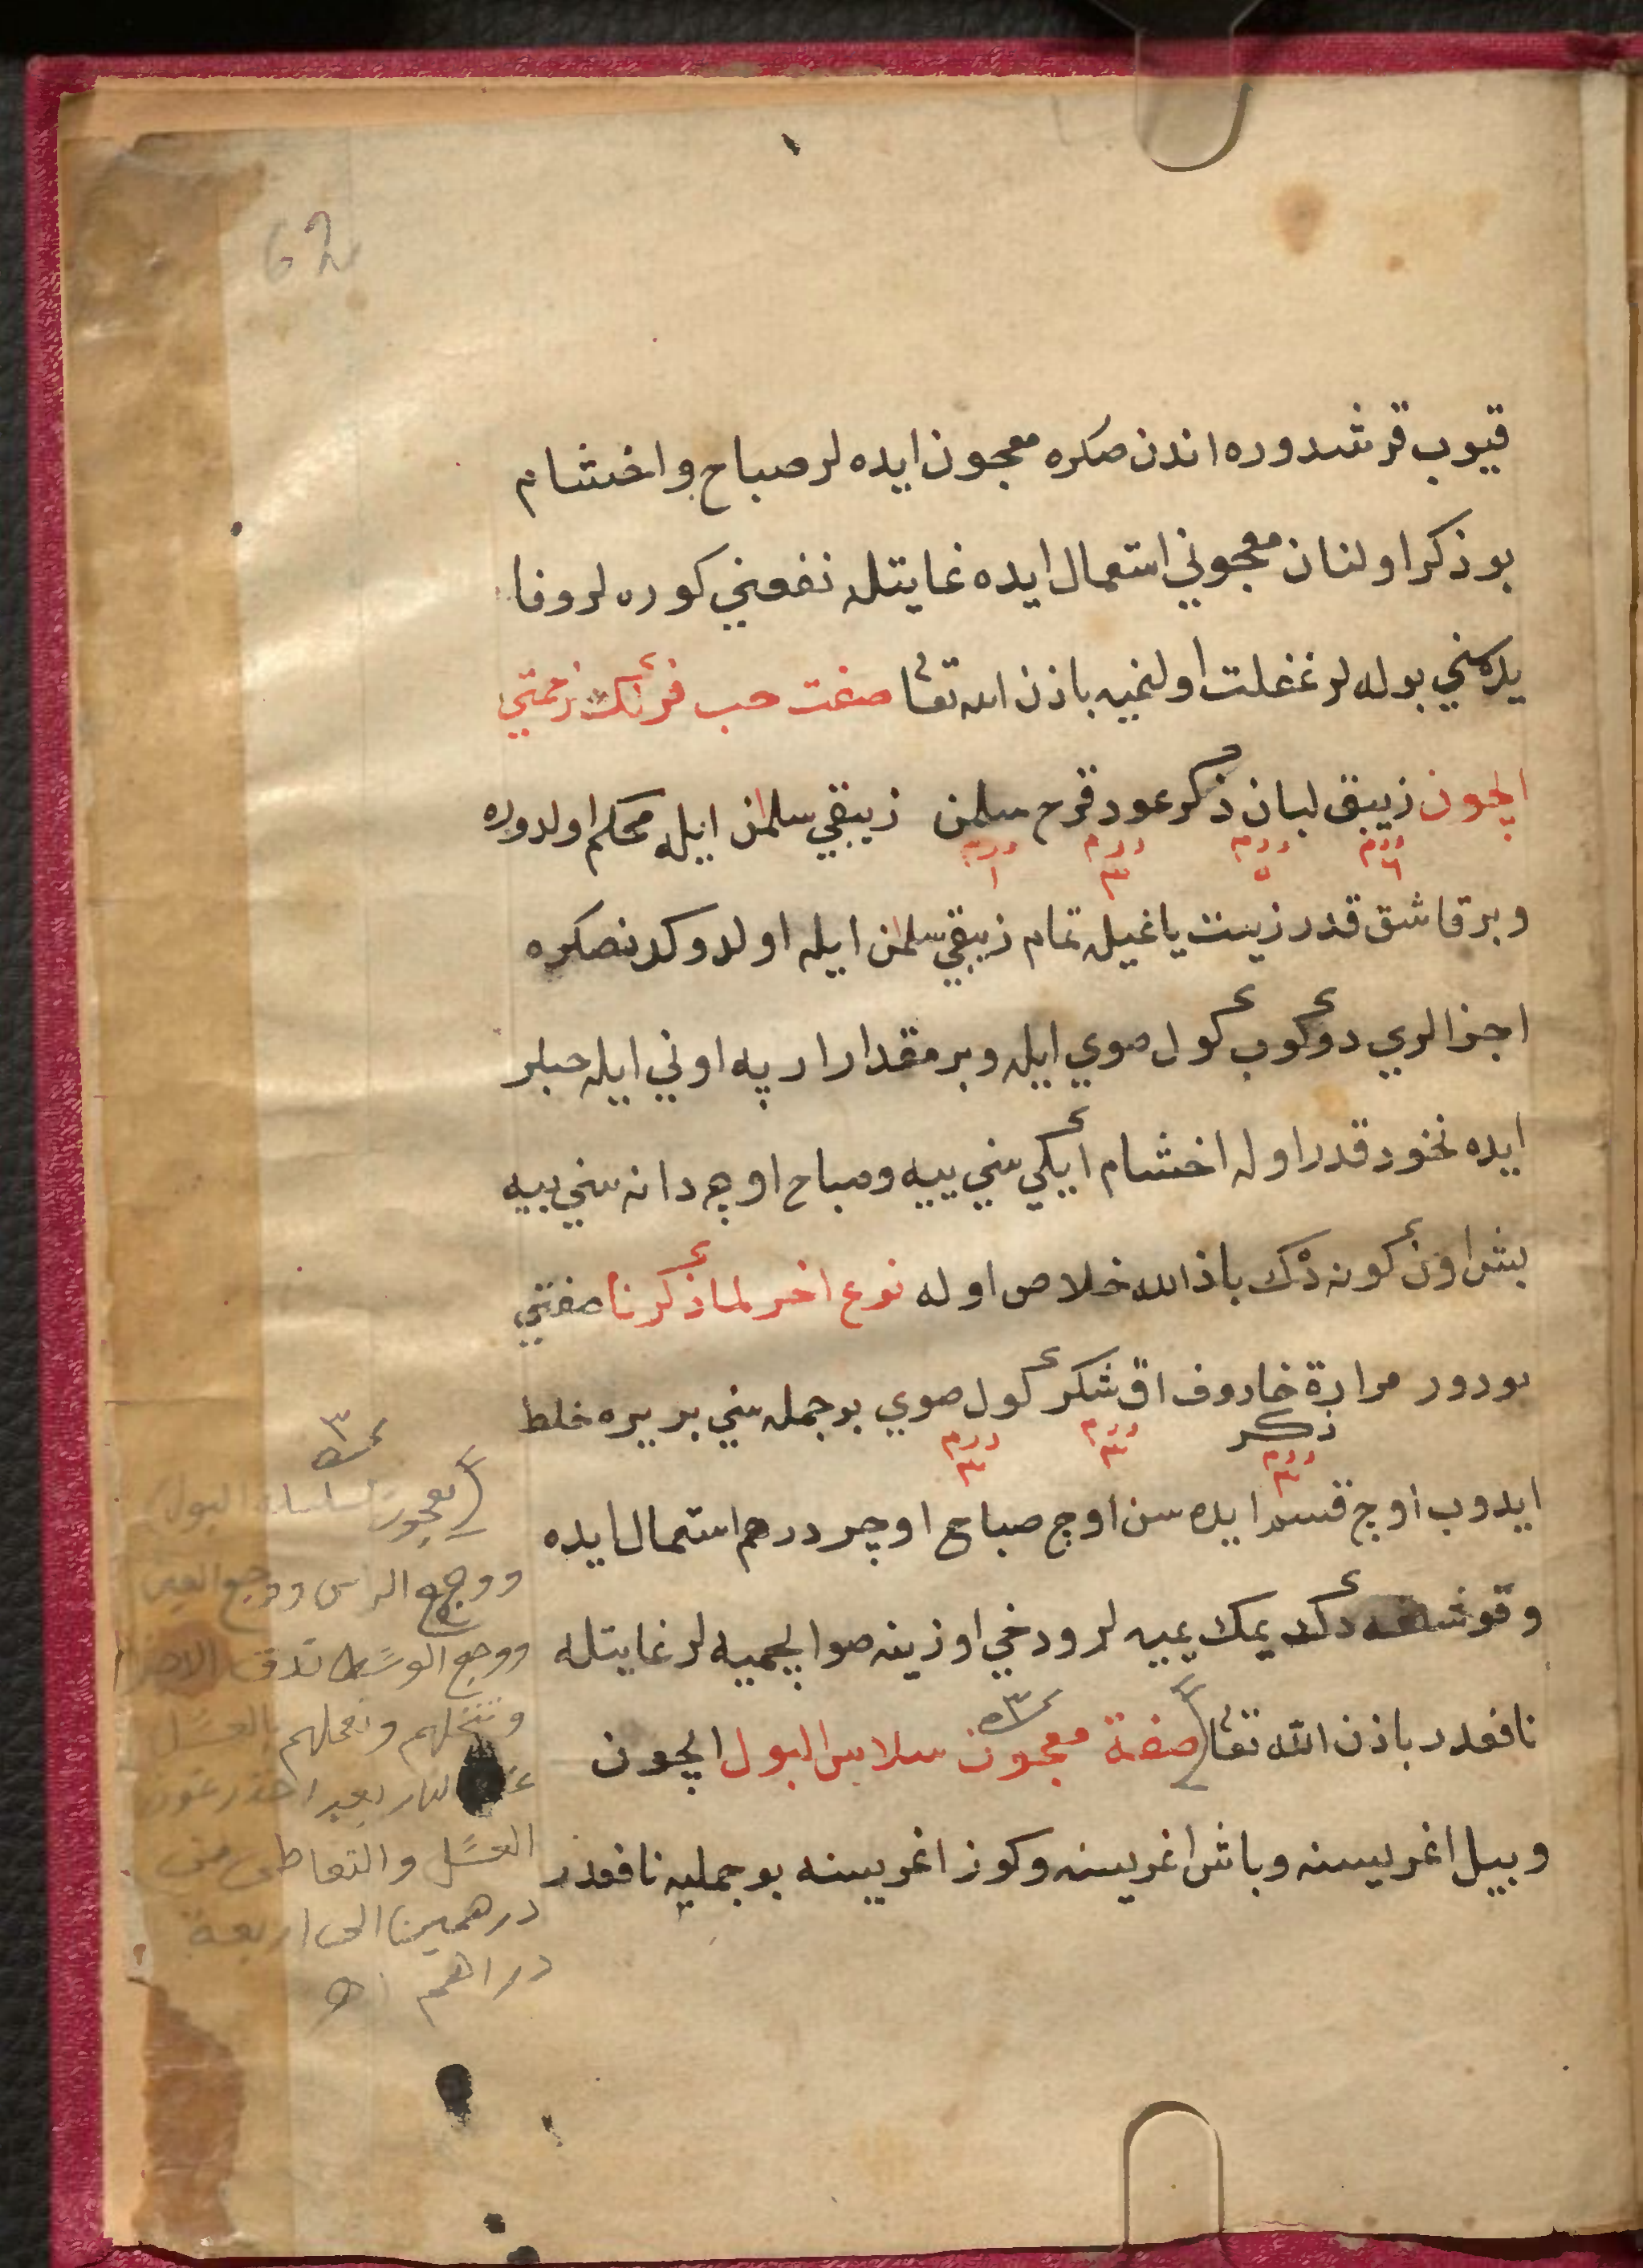 62
قيوب قرشدوره اندن صكره معجون ايده لر صباح واخشام
بو ذكر اولنان معجوني استعمال ايده غايتله نفعني كوره لر وفا
يده سني بوله لر غفلت اولنميه باذن الله تعا صفت حب فرنك زحمتي
ايچون زيبق لبان ذكر عود قرح سلمن زيبقي سلمن ايله محكم اولدوره
درم ٦ درم ٥ درم ٣ درم ١
وبر قاشق قدر زيت ياغيله تمام زيبقي سلمن ايله اولدوكدنصكره
اجزالري دوكوب كول صوي ايله وبر مقدار ارپه اوني ايله حبلر
ايده نخود قدر اوله اخشام ايكي سني ييه وصباح اوچ دانه سني ييه
بش اون كونه دك باذالله خلاص اوله نوع اخر لما ذكرنا صفتي
بودور مرارة خاروف اق شكر كول صوي بو جمله سني بر يره خلط
ذكر
درم ٣ درم ٣ درم ٣
ايدوب اوچ قسم ايده سن اوچ صباح اوچر درهم استمال ايده
وقوشلغه دكد يمك يميه لر ودخي اوزينه صو ايچميه لر غايتله
نافعدر باذن الله تعا صفة معجون سلاس البول ايچون
وبيل اغريسنه وباش اغريسنه وكوز اغريسنه بو جمليه نافعدر
٣
معجون سلسلة البول
ووجع الراس ووجع العين
ووجع الوسط تدق
وتنخلهم بالعسل
العسل والتعاطى من
درهمين الى اربعة
دراهم